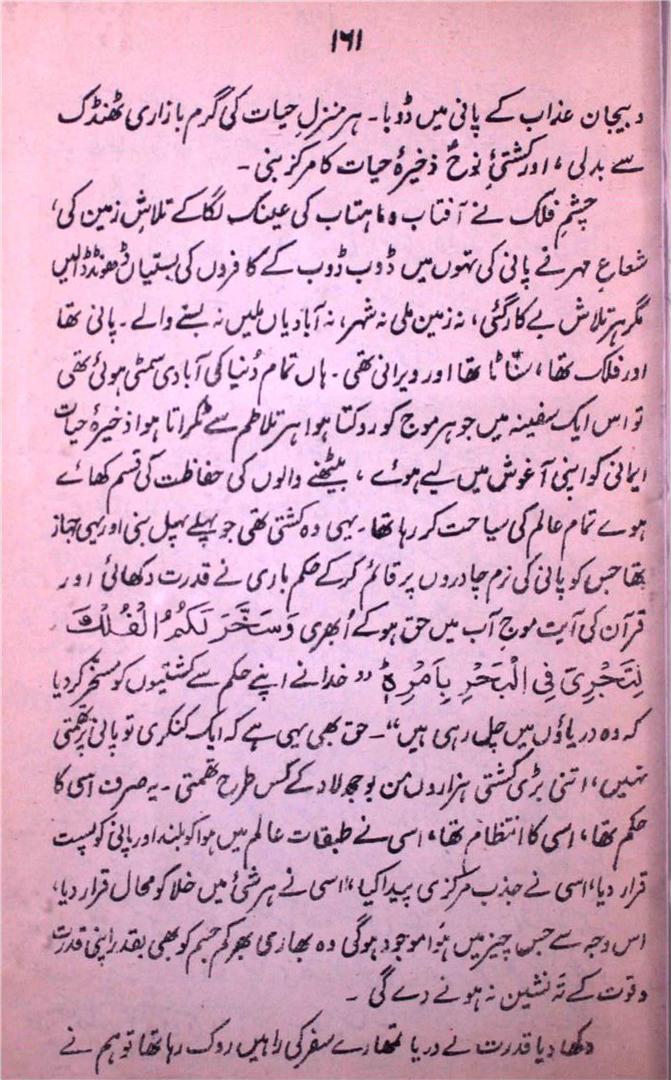 ۱۶۱
و بیجان عذاب کے پانی میں ڈوبا۔ ہر منزلِ حیات کی گرم بازاری ٹھنڈک
سے بدلی، اور کشتیٔ نوحؑ ذخیرۂ حیات کا مرکز بنی۔
چشمِ فلک نے آفتاب و ماہتاب کی عینک لگا کے تلاشِ زمین کی،
شعاعِ مہر نے پانی کی تہوں میں ڈوب ڈوب کے کافروں کی بستیاں ڈھونڈ ڈالیں
مگر ہر تلاش بے کار گئی، نہ زمین ملی نہ شہر، نہ آبادیاں ملیں نہ بسنے والے۔ پانی تھا
اور فلک تھا، سنّاٹا تھا اور ویرانی تھی۔ ہاں تمام دُنیا کی آبادی سمٹی ہوئی تھی
تو اس ایک سفینہ میں جو ہر موج کو روکتا ہوا ہر تلاطم سے ٹکراتا ہوا ذخیرۂ حیات
ایمانی کو اپنی آغوش میں لیے ہوئے، بیٹھنے والوں کی حفاظت کی قسم کھائے
ہوے تمام عالم کی سیاحت کر رہا تھا۔ یہی وہ کشتی تھی جو پہلے پہل بنی اور یہی جہاز
تھا جس کو پانی کی نرم چادروں پر قائم کر کے حکم باری نے قدرت دکھائی اور
قرآن کی آیت موجِ آب میں حق ہو کے اُبھری وَسَخَّرَ لَکُمُ الْفُلْکَ
لِتَجْرِیَ فِی الْبَحْرِ بِاَمْرِہٖ ’’خدا نے اپنے حکم سے کشتیوں کو مسخر کر دیا
کہ وہ دریاؤں میں چل رہی ہیں‘‘۔ حق بھی یہی ہے کہ ایک کنکری تو پانی پر تھمتی
نہیں، اتنی بڑی کشتی ہزاروں من بوجھ لاد کے کس طرح تھمتی۔ یہ صرف اسی کا
حکم تھا، اسی کا انتظام تھا، اسی نے طبقات عالم میں ہوا کو بلند اور پانی کو پست
قرار دیا، اسی نے جذب مرکزی پیدا کیا، اسی نے ہر شئ میں خلا کو محال قرار دیا،
اس وجہ سے جس چیز میں ہوا موجود ہوگی وہ بھاری بھرکم جسم کو بھی بقدر اپنی قدرت
و قوت کے تہ نشین نہ ہونے دے گی۔
دکھا دیا قدرت نے دریا تمھارے سفر کی راہیں روک رہا تھا تو ہم نے